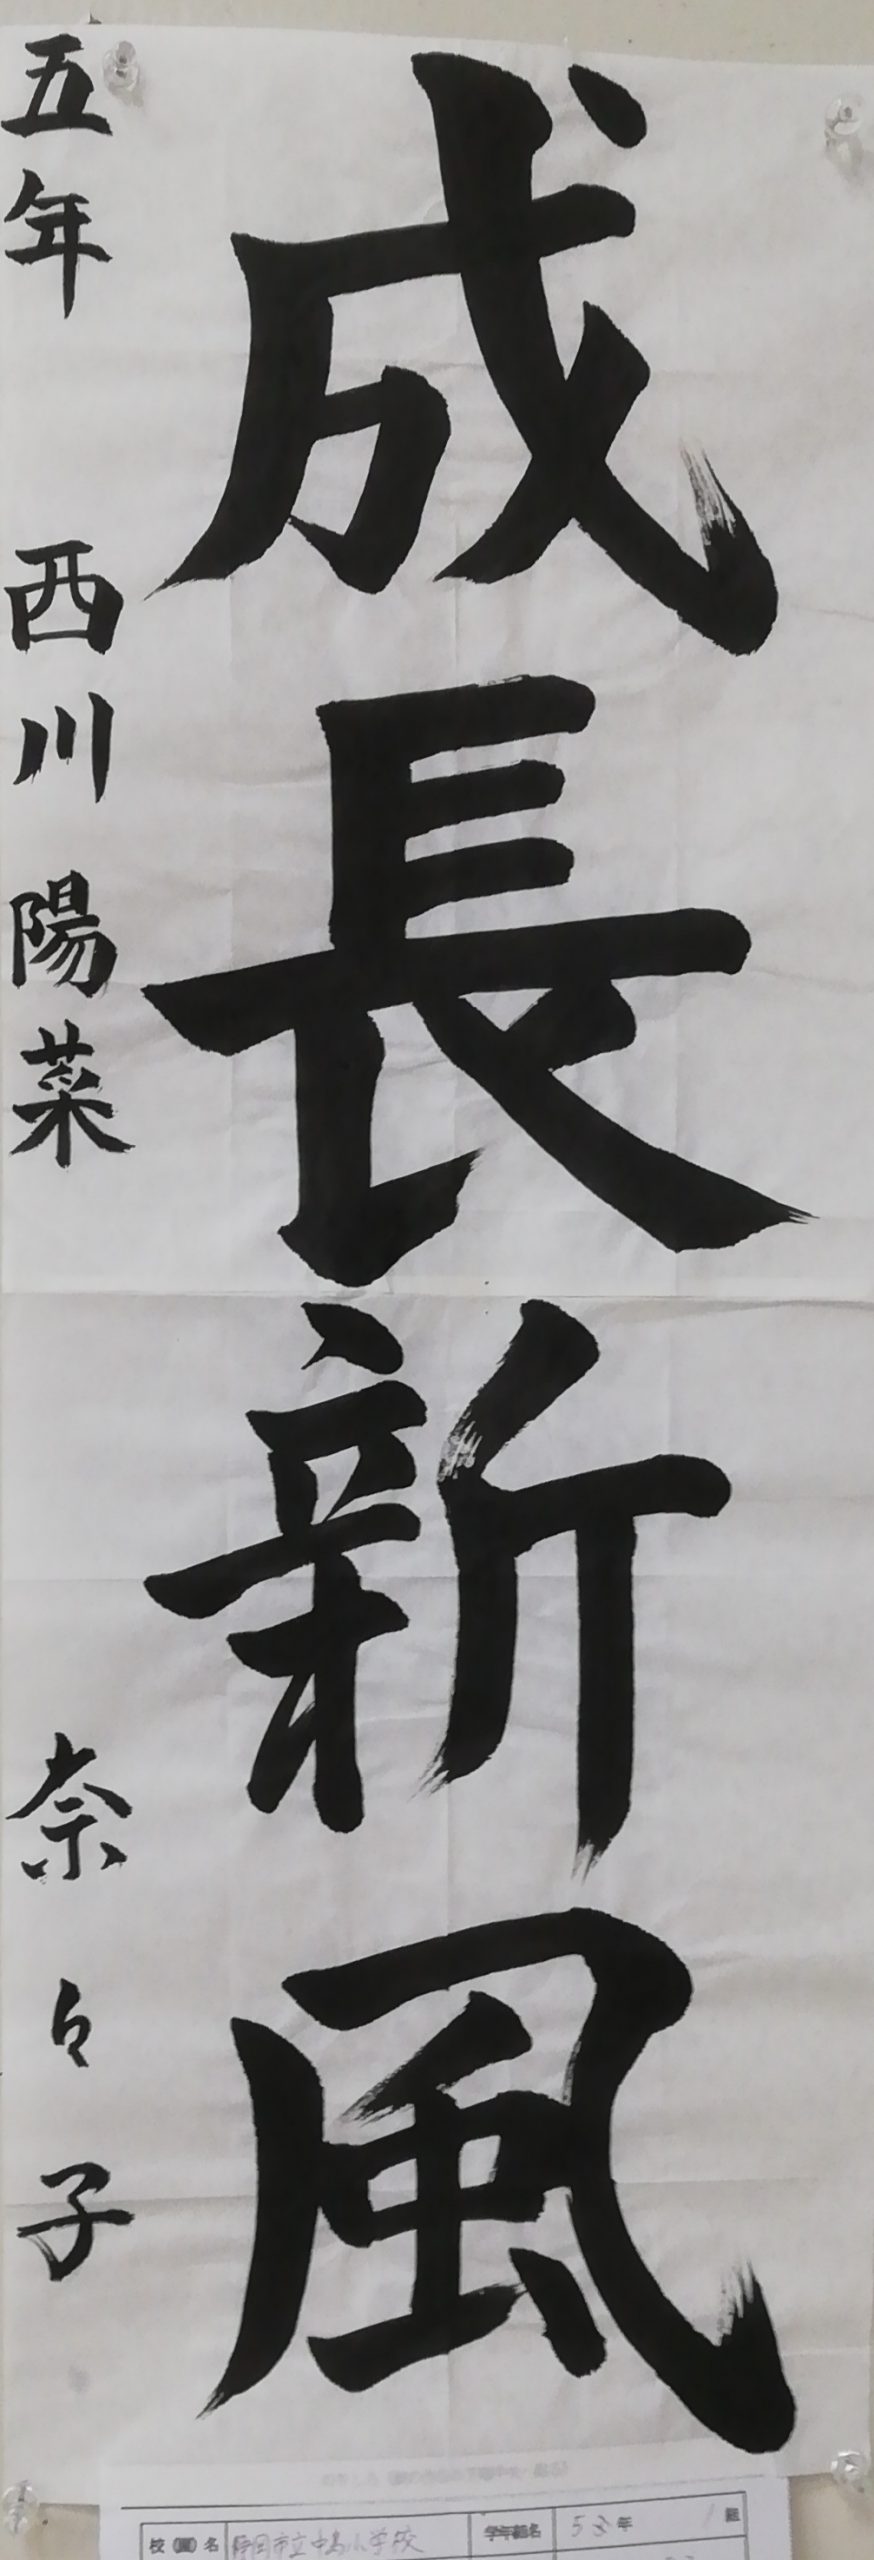 成長新風
五年 西川陽菜 奈々子
校(園)名 市立中島小学校 学年組名 5年 1組